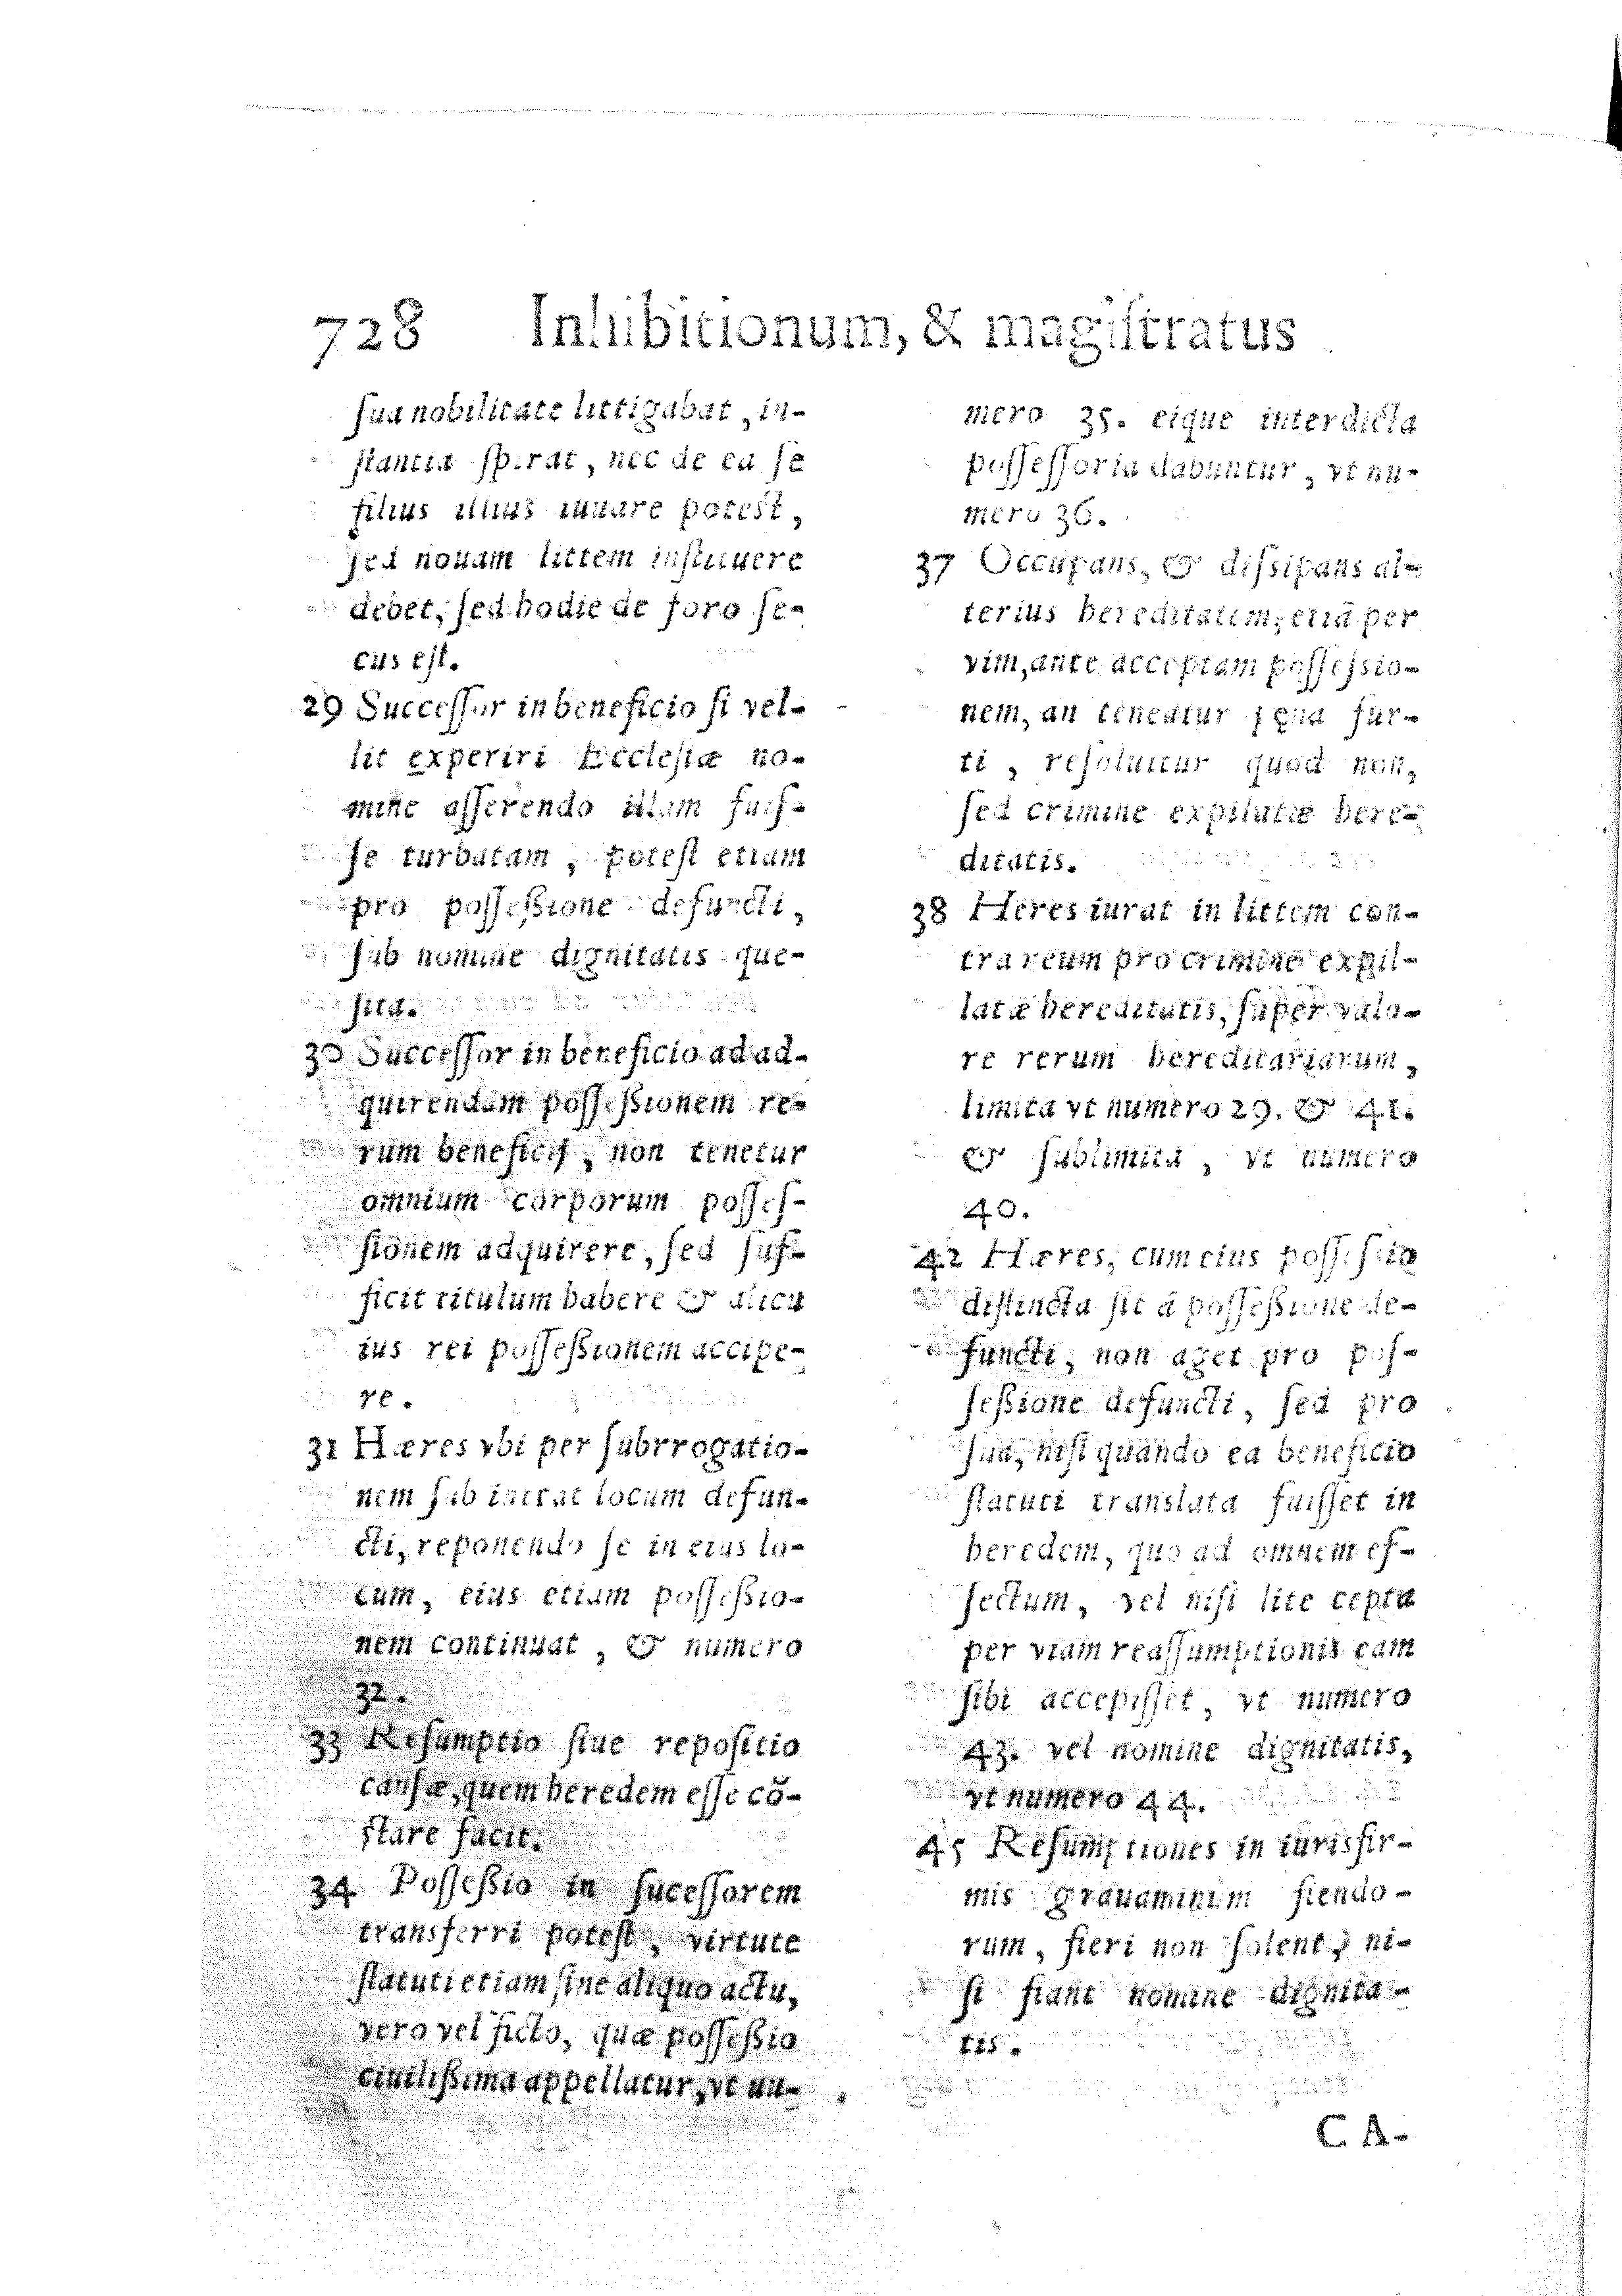 728 Inhibitionum, & magiſtratus
ſua nobilitate littigabat, in-
ſtantia ſpirat, nec de ea ſe
filius illius iuuare poteſt,
ſed nouam littem inſtituere
debet, ſed hodie de foro ſe-
cus eſt.
29 Succeſſor in beneficio ſi vel-
lit experiri Eccleſiæ no-
mine aſſerendo illam fuiſ-
ſe turbatam, poteſt etiam
pro poſſeßione defuncti,
ſub nomine dignitatis que-
ſita.
30 Succeſſor in beneficio ad ad-
quirendam poſſeßionem re-
rum beneficij, non tenetur
omnium corporum poſſeſ-
ſionem adquirere, ſed ſuf-
ficit titulum habere & alicu
ius rei poſſeßionem accipe-
re.
31 Hæres vbi per ſubrrogatio-
nem ſub intrat locum defun-
cti, reponendo ſe in eius lo-
cum, eius etiam poſſeßio-
nem continuat, & numero
32.
33 Reſumptio ſiue repoſitio
cauſæ, quem heredem eſſe cõ-
ſtare facit.
34 Poſſeßio in ſuceſſorem
transferri poteſt, virtute
ſtatuti etiam ſine aliquo actu,
vero vel ficto, quæ poſſeßio
ciuilißima appellatur, vt nu-
mero 35. eique interdicta
poſſeſſoria dabuntur, vt nu-
mero 36.
37 Occupans, & diſsipans al-
terius hereditatem, etiã per
vim, ante acceptam poſſeſsio-
nem, an teneatur pęna fur-
ti, reſoluitur quod non,
ſed crimine expilatæ here-
ditatis.
38 Heres iurat in littem con-
tra reum pro crimine expil-
latæ hereditatis, ſuper valo-
re rerum hereditariarum,
limita vt numero 29. & 41.
& ſublimita, vt numero
40.
42 Hæres, cum eius poſſeſsio
diſtincta ſit á poſſeßione de-
functi, non aget pro poſ-
ſeßione defuncti, ſed pro
ſua, niſi quando ea beneficio
ſtatuti translata fuiſſet in
heredem, quo ad omnem ef-
fectum, vel niſi lite cepta
per viam reaſſumptionis eam
ſibi accepiſſet, vt numero
43. vel nomine dignitatis,
vt numero 44.
45 Reſumptiones in iurisfir-
mis grauaminum fiendo-
rum, fieri non ſolent, ni-
ſi fiant nomine dignita-
tis.
CA-